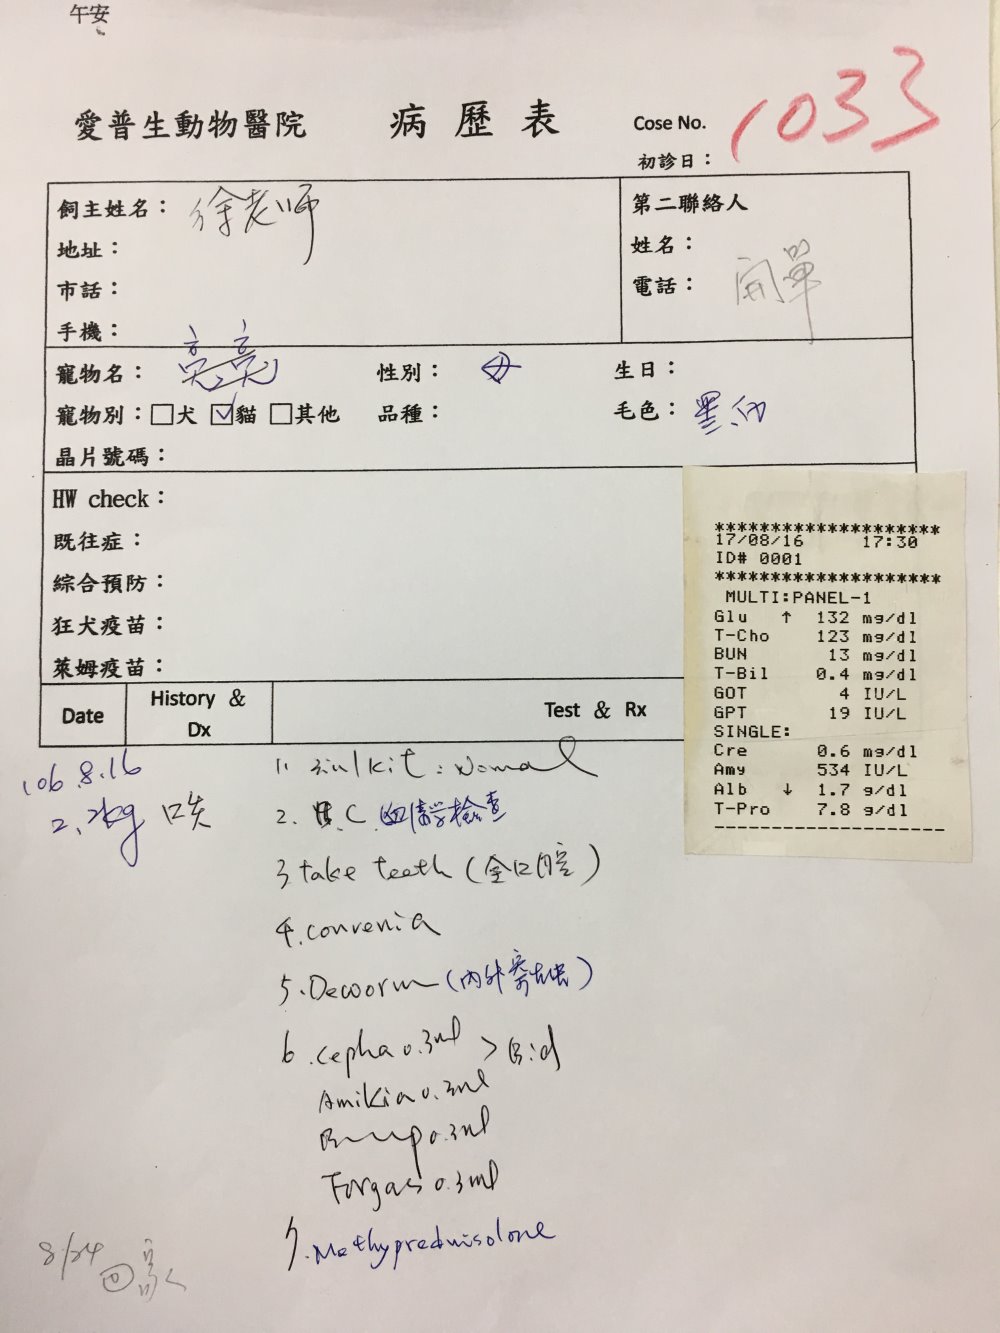 午安
愛普生動物醫院 病歷表 Cose No. 1033
初診日：
飼主姓名： 徐老師
地址：
市話：
手機：
第二聯絡人
姓名：
電話：
開單
寵物名： 亮亮 性別： 母 生日：
寵物別：□犬 ☑貓 □其他 品種： 毛色：
晶片號碼：
HW check：
既往症：
綜合預防：
狂犬疫苗：
萊姆疫苗：
********************
17/08/16 17:30
ID# 0001
********************
MULTI:PANEL-1
Glu ↑ 132 mg/dl
T-Cho 123 mg/dl
BUN 13 mg/dl
T-Bil 0.4 mg/dl
GOT 4 IU/L
GPT 19 IU/L
SINGLE:
Cre 0.6 mg/dl
Amy 534 IU/L
Alb ↓ 1.7 g/dl
T-Pro 7.8 g/dl
---------------------
Date History & Dx Test & Rx
106.8.16
2.2kg
1. 3in1 kit: Nomal
2. B.C. 血清學檢查
3 take teeth (全口腔)
4. convenia
5. Deworm (內外寄生蟲)
6. cepha 0.3ml > Bid
Amikia 0.3ml
0.3ml
Forgas 0.3ml
7. Methyprednisolone
8/24 回家